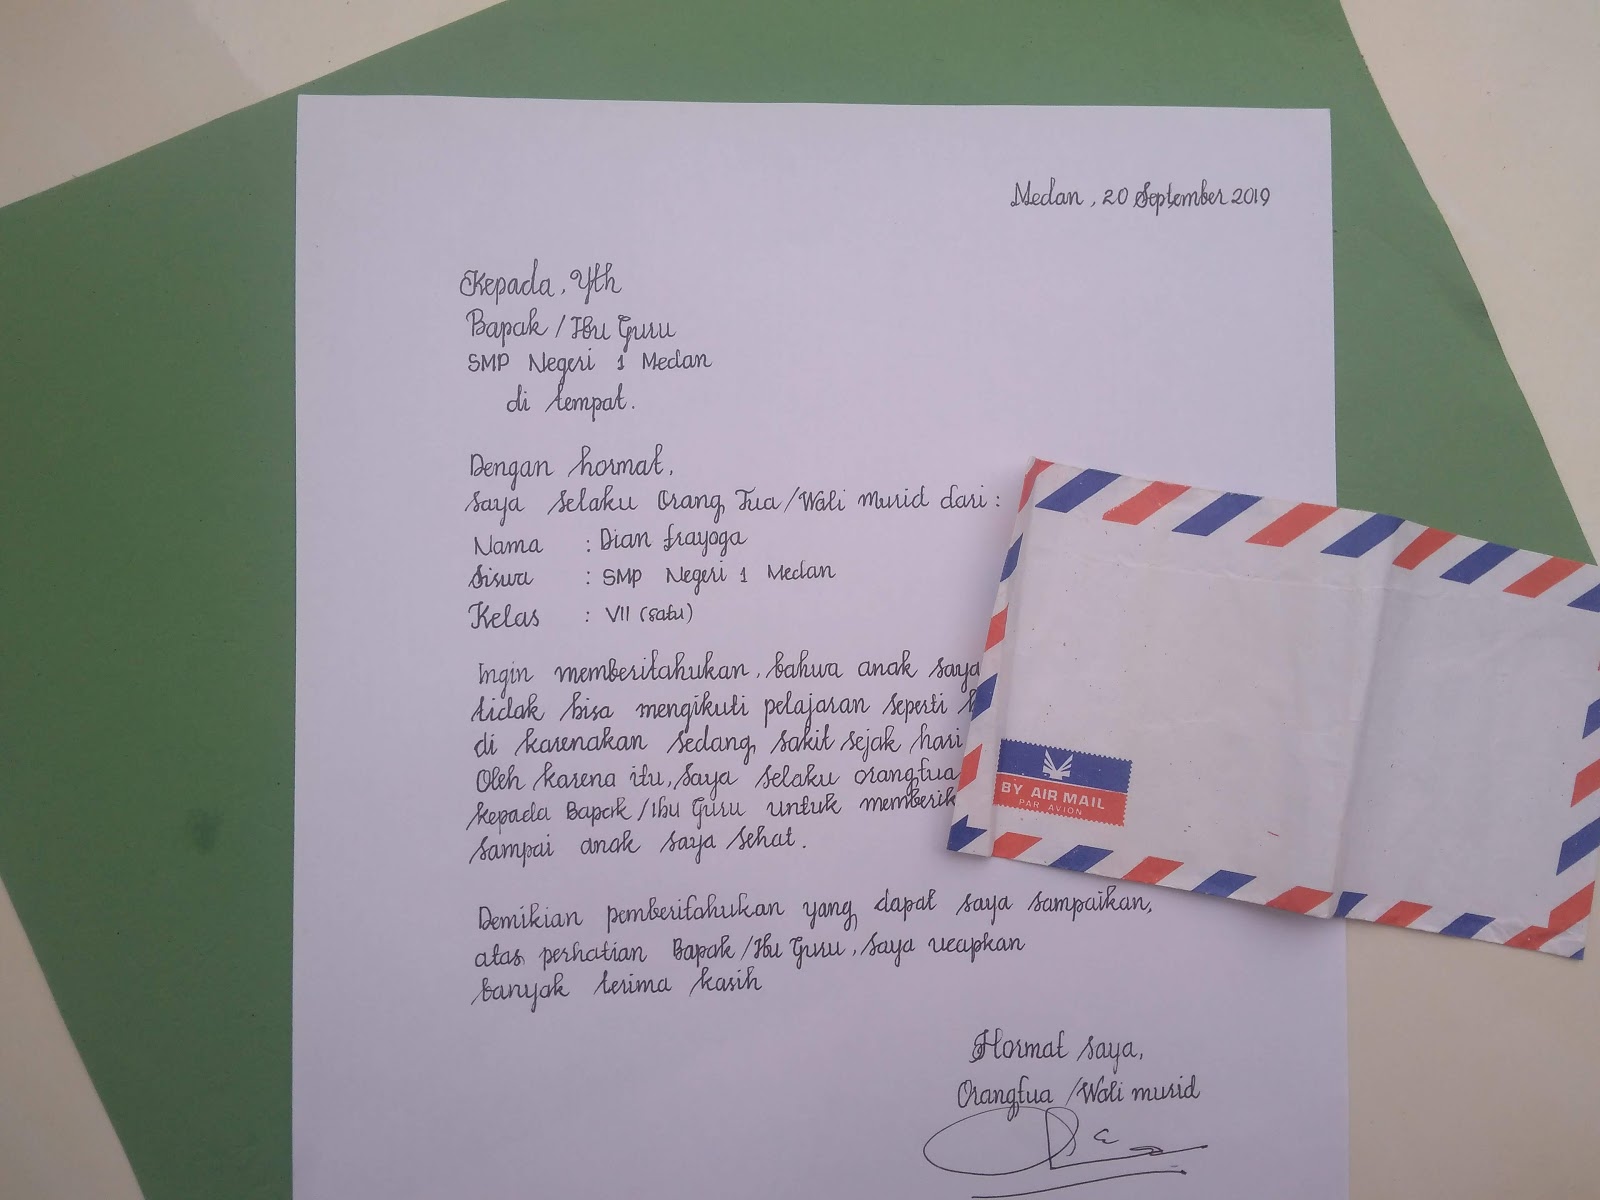 Medan, 20 September 2019
Kepada, Yth
Bapak / Ibu Guru
SMP Negeri 1 Medan
di tempat.
Dengan hormat,
Saya selaku Orang Tua/Wali murid dari :
Nama : Dian frayoga
Siswa : SMP Negeri 1 Medan
Kelas : VII (satu)
Ingin memberitahukan, bahwa anak saya
tidak bisa mengikuti pelajaran seperti
di karenakan sedang sakit sejak hari
Oleh karena itu, saya selaku orangtua
kepada Bapak/Ibu Guru untuk
sampai anak saya sehat.
Demikian pemberitahukan yang dapat saya sampaikan,
atas perhatian Bapak/Ibu Guru, saya ucapkan
banyak terima kasih
Hormat saya,
Orangtua /Wali murid
BY AIR MAIL
PAR AVION